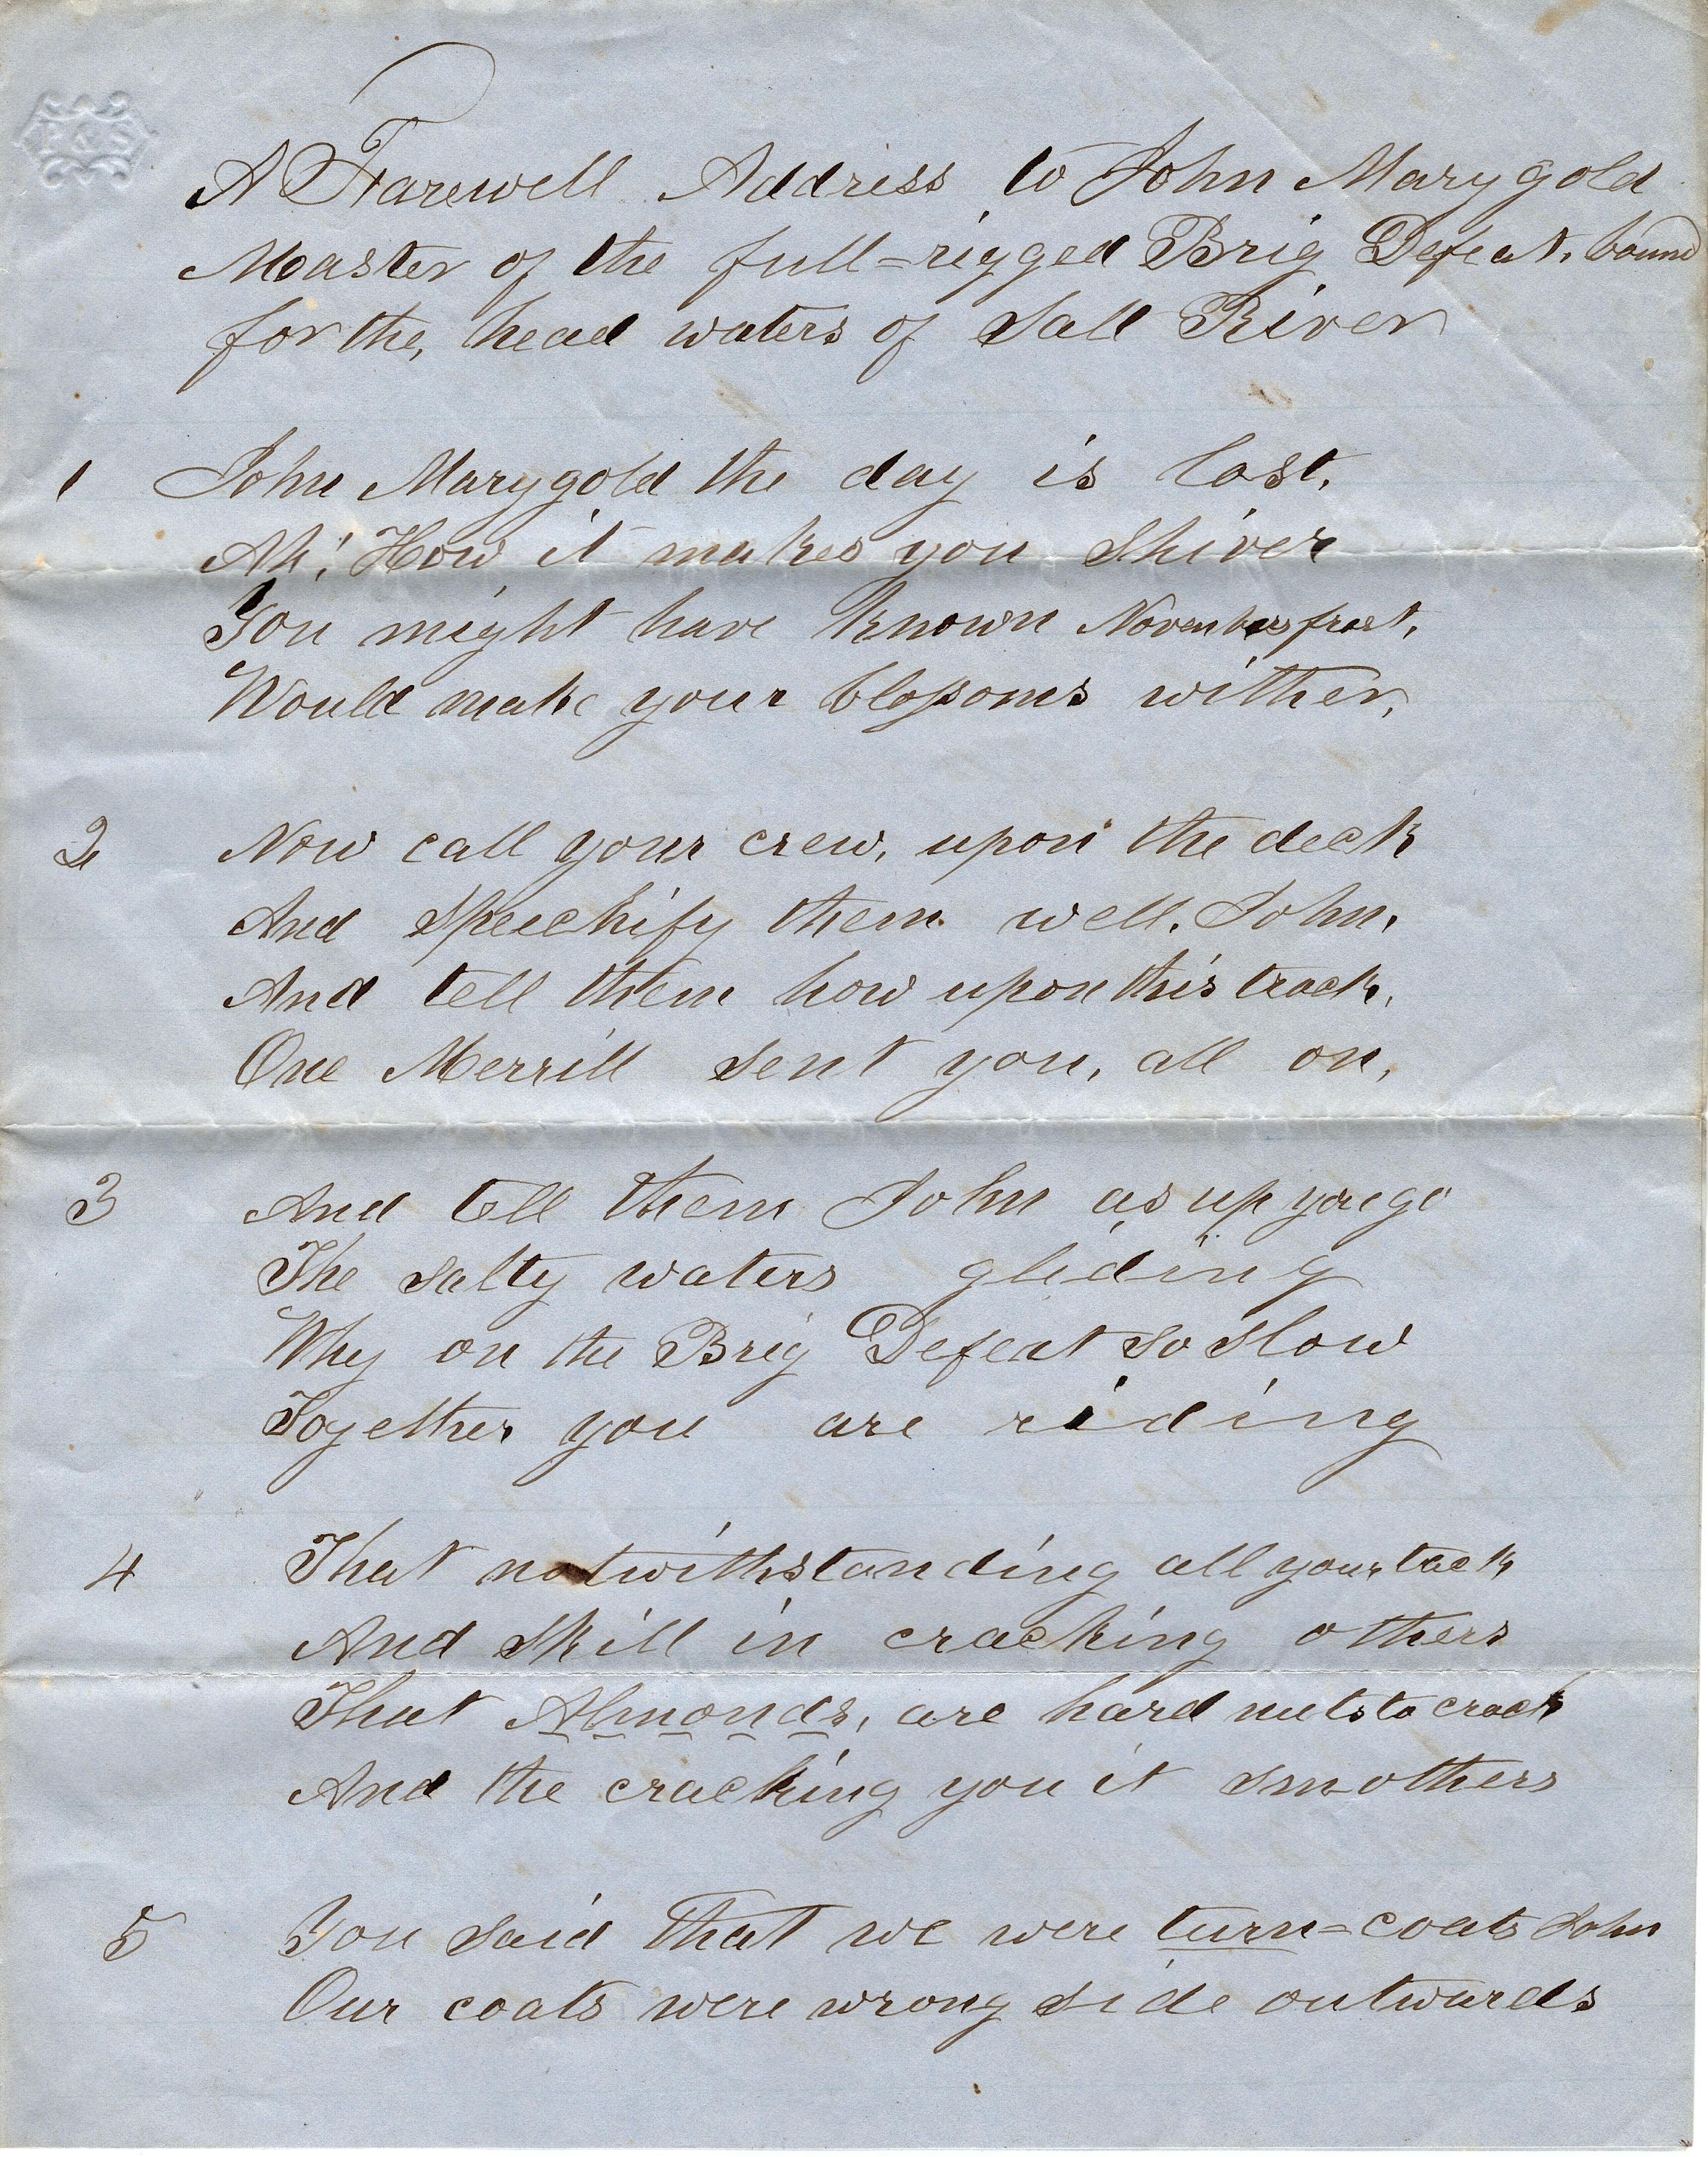 P & S
A Farewell Address to John Marygold
Master of the full-rigged Brig Defeat, bound
for the, head waters of Salt River
1 John Marygold the day is lost,
Ah! How it makes you shiver
You might have known Novembers frost,
Would make your blossoms wither,
2 Now call your crew, upon the deck
And Speechify them well, John,
And tell them how upon this track,
One Merrill sent you, all on,
3 And tell them John as up you go
The salty waters gliding
Why on the Brig Defeat so slow
Together you are riding
4 That notwithstanding all your tack
And skill in cracking others
That Almonds, are hard nuts to crack
And the cracking you it smothers
5 You said that we were turn=coats John
Our coats were wrong side outwards